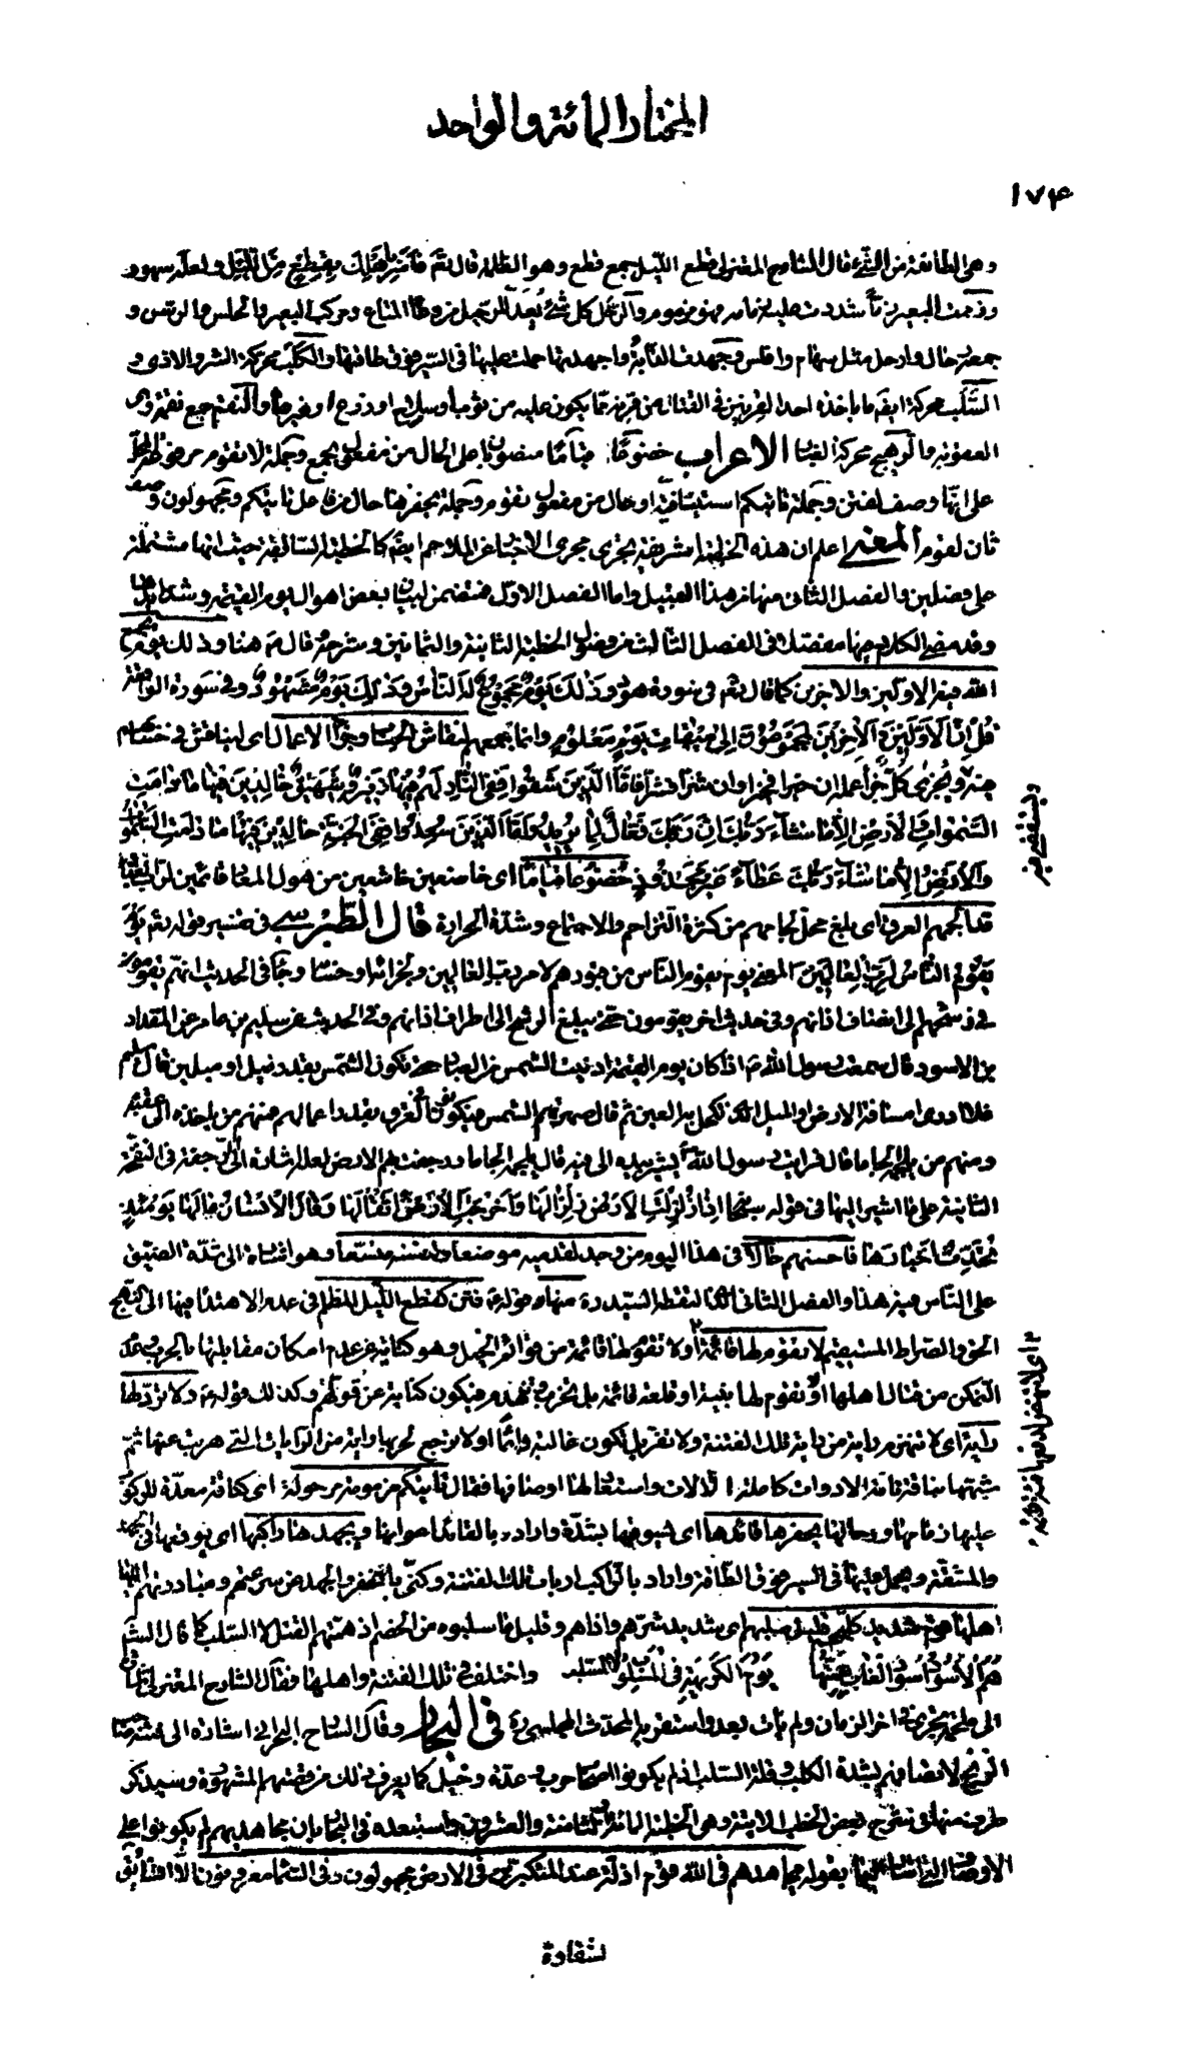 المختار المائة والواحد
١٧۴
وهى الطائفة من الشىء قال الشارح المعتزلى قطع الليل جمع قطع وهو الظلمة قال تعالى فأسر بأهلك بقطع من الليل ولعله سهو و
وزممت البعير زمّاً شددت عليه زمامه فهو مزموم والرحل كل شىء يعدّ للرحيل من وعاء المتاع ومركب البعير والحلس والرسن و
جمعه رحال وارحل مثل سهام وافلس وجهدت الدابة واجهدتها حملت عليها فى السير فوق طاقتها والكلب محركة الشر والاذى و
السلب محركة ايضا ما يأخذه احد القرنين فى القتال من قرنه مما يكون عليه من ثوب او سلاح او درع او غيرها والنقم جمع نقمة وهى
العقوبة والرهج محركة الغبار الاعراب خضوعاً قياماً منصوبان على الحال من مفعول يجمع وجملة لا تقوم مرفوعة المحل
على انها وصف لفتن وجملة تأتيكم استينافية او حال من مفعول تقوم وجملة يحفزها حال من فاعل تأتيكم ومجهولون وصف
ثان لقوم المعنى اعلم ان هذه الخطبة الشريفة يجرى مجرى الاخبار عن الملاحم ايضا كالخطبة السالفة حيث انها مشتملة
على فصلين والفصل الثانى منها من هذا القبيل واما الفصل الاول فمتضمن لبيان بعض اهوال يوم القيامة وشدايدها
وقد مضى الكلام فيها مفصلا فى الفصل الثالث من فصول الخطبة الثانية والثمانين وشرحه قال ع هنا وذلك يوم يجمع
الله فيه الاولين والاخرين كما قال تعالى فى سورة هود وذلك يوم مجموع له الناس وذلك يوم مشهود وفى سورة الواقعة
قل إن الأولين والآخرين لمجموعون إلى ميقات يوم معلوم وانما يجمعهم لنقاش الحساب وجزاء الاعمال اى ليناقش فى حسابهم
فيه ويجزى كل جزاء عمله ان خيرا فخيرا وان شرا فشرا فأما الذين شقوا ففى النار لهم فيها زفير وشهيق خالدين فيها ما دامت
السموات والأرض إلا ما شاء ربك إن ربك فعال لما يريد وأما الذين سعدوا ففى الجنة خالدين فيها ما دامت السموات
والأرض إلا ما شاء ربك عطاء غير مجذوذ خضوعا قياما اى خاضعين خاشعين من هول المعاد قائمين لرب العباد
قد الجمهم العرق اى بلغ محل لجامهم من كثرة التزاحم والاجتماع وشدة الحرارة قال الطبرسى فى تفسير قوله تعالى يوم
يقوم الناس لرب العالمين المعنى يوم يقوم الناس من قبورهم لامر رب العالمين ولجزائه او حسابه وجاء فى الحديث انهم يقومون
فى رشحهم الى انصاف اذانهم وفى حديث اخر يقومون حتى يبلغ الرشح الى اطراف اذانهم وفى الحديث عن سليم بن عامر عن المقداد
بن الاسود قال سمعت رسول الله ص اذا كان يوم القيمة ادنيت الشمس من العباد حتى تكون الشمس بقدر ميل او ميلين قال سليم
فلا ادرى امسافة الارض او الميل الذى تكحل به العين ثم قال صهرتهم الشمس فيكونون فى العرق بقدر اعمالهم فمنهم من يأخذه الى عقبه
ومنهم من يلجمه الجاما قال فرايت رسول الله ص يشير بيده الى فيه قال يلجمه الجاما ورجفت بهم الارض لعله اشارة الى الرجفة فى النفخة
الثانية على ما اشير اليها فى قوله سبحانه اذا زلزلت الارض زلزالها وأخرجت الأرض أثقالها وقال الإنسان ما لها يومئذ
تحدث أخبارها فاحسنهم حالا فى هذا اليوم من وجد لقدميه موضعا ولنفسه متسعا وهو اشارة الى شدة الضيق
على الناس فيه هذا والفصل الثانى الذى التقطه السيد ره منها هو قوله ع فتن كقطع الليل المظلم فى عدم الاهتداء فيها الى النهج
الحق والصراط المستقيم لا تقوم لها قائمة اى لا تقوم لها قائمة من قوائم الخيل وهو كناية عن عدم امكان مقابلتها بالحرب وعدم
التمكن من قتال اهلها او لا تقوم لها بنية او قلعة قائمة بل تخرب وتهدم فيكون كناية عن قوتهم وكذلك قوله ع ولا ترد لها
راية اى لا تنهزم راية من راية تلك الفتنة ولا تفر بل تكون غالبة دائما او لا ترجع لحربها راية من الرايات التى هربت عنها ثم
شبهها بناقة تامة الادوات كاملة الآلات واستعار لها اوصافها فقال تأتيكم مزمومة مرحولة اى كناقة معدة للركوب
عليها زمامها ورحالها يحفزها قائدها اى يسوقها بشدة واراد بالقائد اعوانها ويجهدها راكبها اى يوقعها فى الجهد
والمشقة ويحمل عليها فى السير فوق الطاقة واراد بالراكب ارباب تلك الفتنة وكنى بالحفز والجهد عن سرعتهم ومبادرتهم اليها
اهلها قوم شديد كلبهم قليل سلبهم اى شديد شرهم واذاهم وقليل ما سلبوه من الخصم اذ همتهم القتل لا السلب كما قال الشاعر
هم الأسود أسود الغاب همتها يوم الكريهة فى المسلوب لا السلب واختلف فى تلك الفتنة واهلها فقال الشارح المعتزلى انها
الى ملحمة تجرى فى اخر الزمان ولم يأت بعد واستقربه المحدث المجلسى ره فى البحار وقال الشارح البحرانى اشارة الى فتنة صاحب
الزنج لاتصافهم بشدة الكلب وقلة السلب اذ لم يكونوا اصحاب حرب وعدة وخيل كما يعرف ذلك من قصتهم المشهورة وسيذكر
طرف منها فى شرح بعض الخطب الاتية وهى الخطبة المائة والثامنة والعشرون واستبعده فى البحار بان مجاهديهم لم يكونوا على
الاوصاف التى اشار اليها بقوله يجاهدهم فى الله قوم اذلة عند المتكبرين فى الارض مجهولون وفى السماء معروفون
لشقاوة